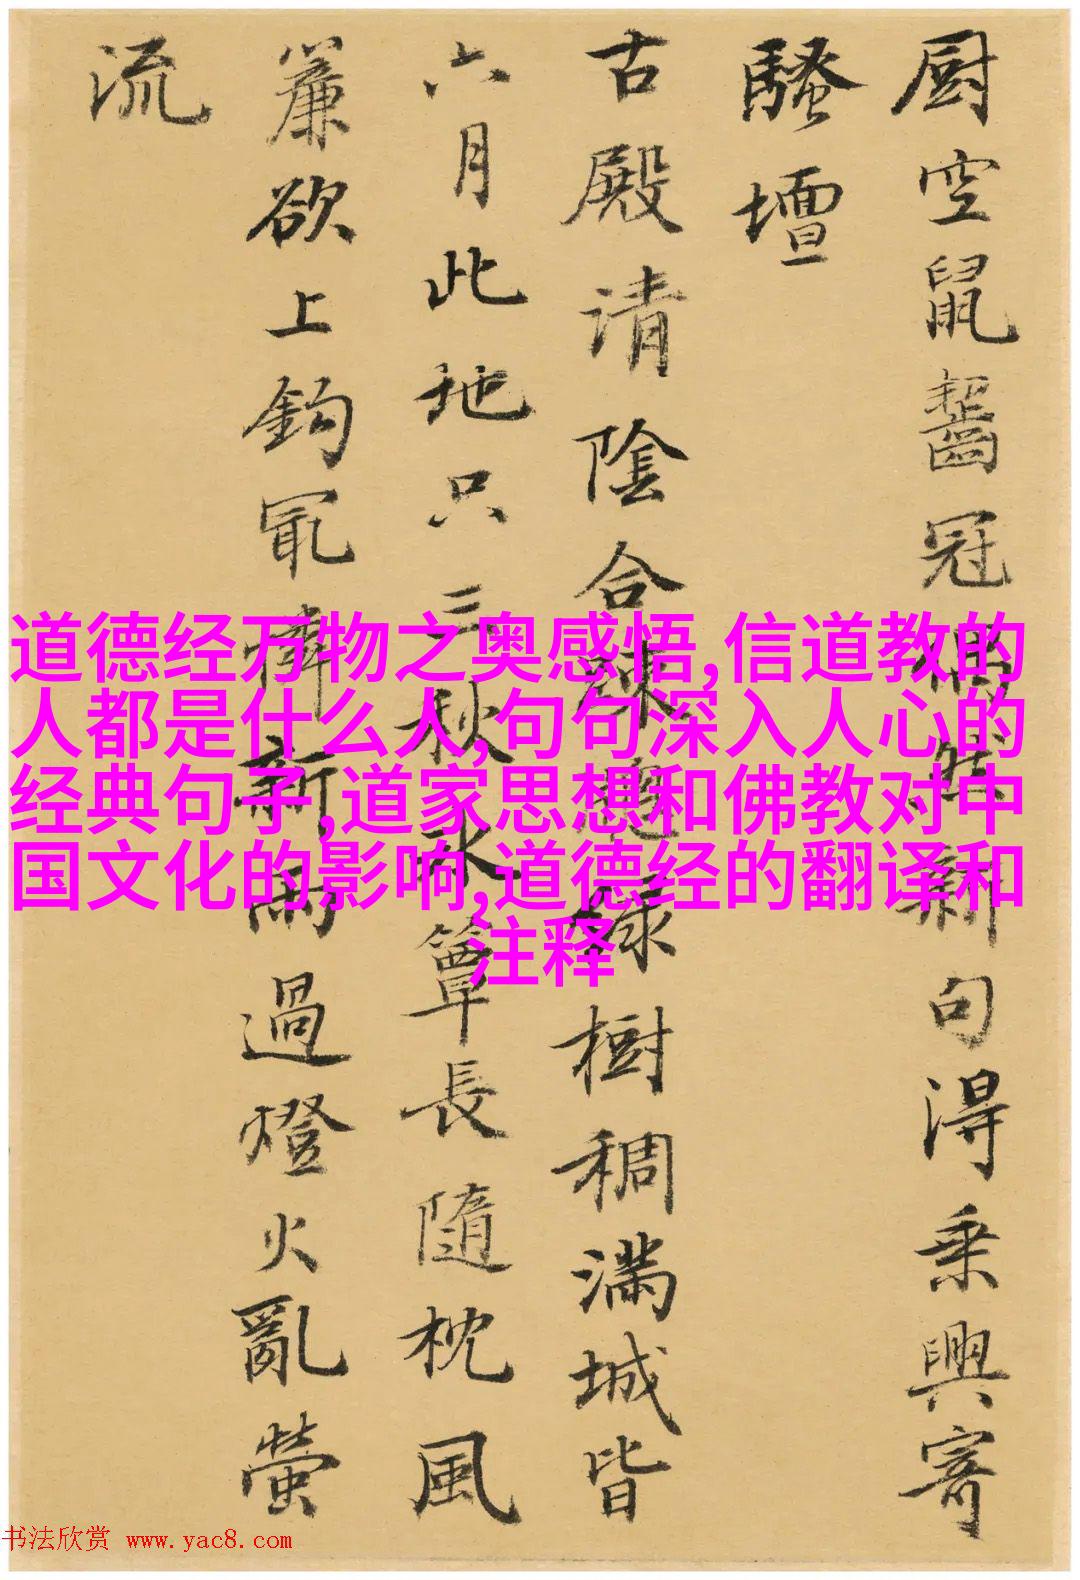 厨空鼠齧冠偶然新句得乗興寄
騷壇
古殿清陰合疎遶緑樹稠满城皆
六月此地只三秋氷簟長隨枕風
簾欲上鈎冣憐新雨過燈火亂螢
流
道德经万物之奥感悟,信道教的
人都是什么人,句句深入人心的
经典句子,道家思想和佛教对中
国文化的影响,道德经的翻译和
注释
书法欣赏 www.yac8.com